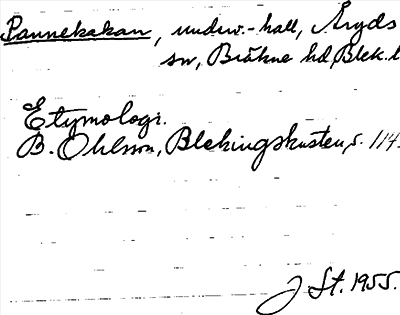 Pannekakan, underv.-hall, Åryds
sn, Bräkne hd, Blek. l
Etymologi.
B. Ohlsson, Blekingskusten, s. 114.
J St. 1955.